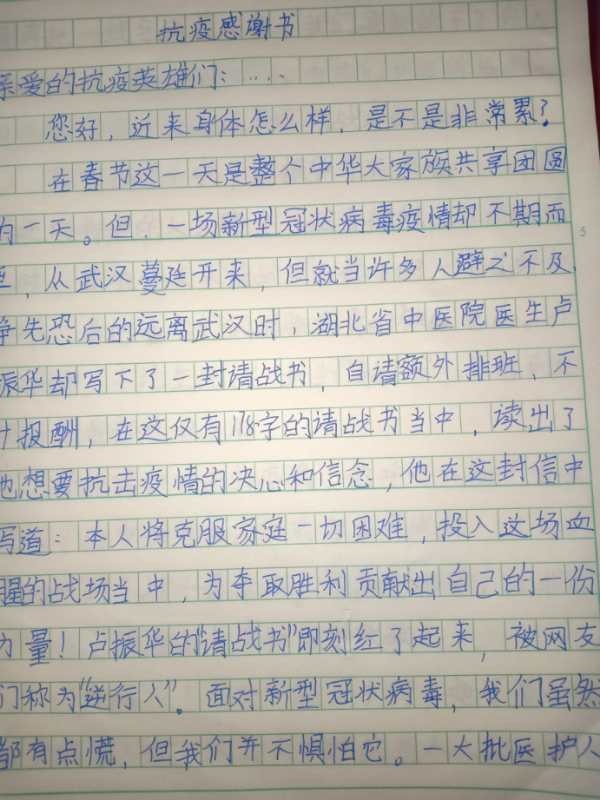 抗疫感谢书
亲爱的抗疫英雄们：……
您好，近来身体怎么样，是不是非常累？
在春节这一天是整个中华大家族共享团圆
的一天。但，一场新型冠状病毒疫情却不期而
至，从武汉蔓延开来，但就当许多人避之不及，
争先恐后的远离武汉时，湖北省中医院医生卢
振华却写下了一封请战书，自请额外排班，不
计报酬，在这仅有118字的请战书当中，读出了
他想要抗击疫情的决心和信念，他在这封信中
写道：本人将克服家庭一切困难，投入这场血
腥的战场当中，为夺取胜利贡献出自己的一份
力量！卢振华的"请战书"即刻红了起来，被网友
们称为"逆行人"。面对新型冠状病毒，我们虽然
都有点慌，但我们并不惧怕它。一大批医护人